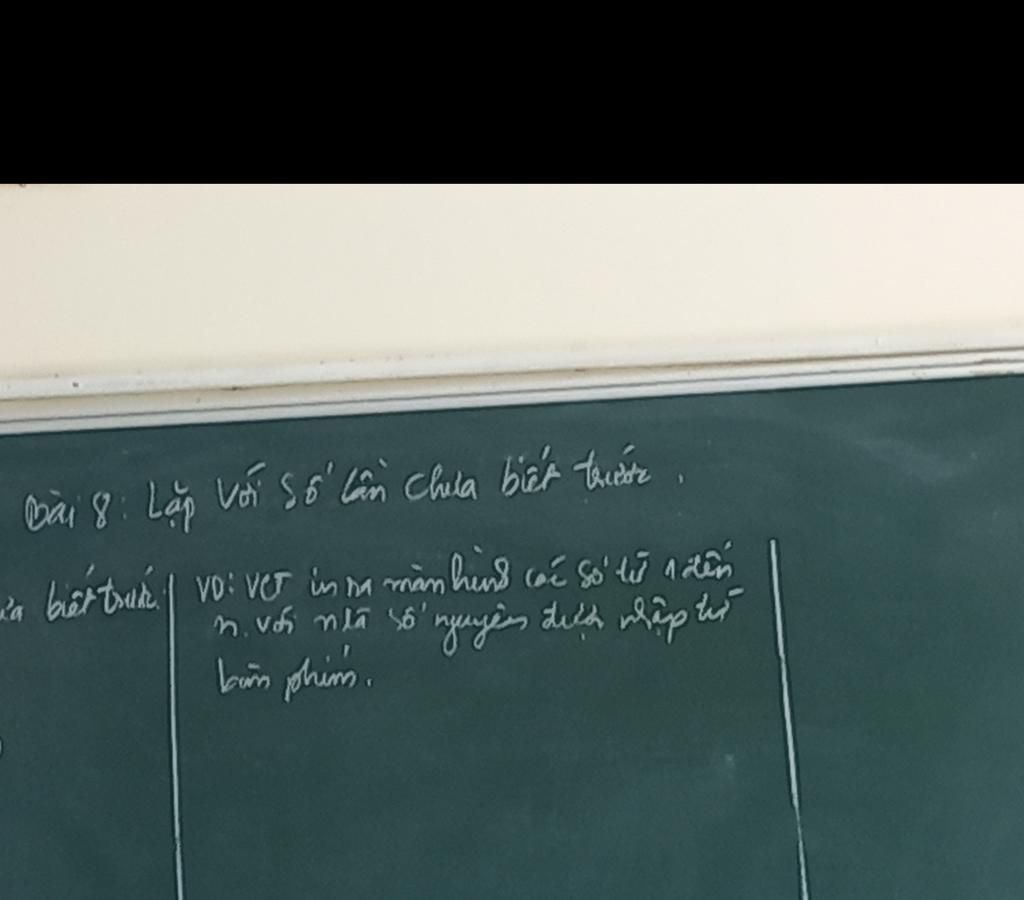 Bài 8: Lặp với số lần chưa biết trước.
biết trước.
VD: VCT in ra màn hình các số từ 1 đến
n. với n là số nguyên được nhập từ
bàn phím.